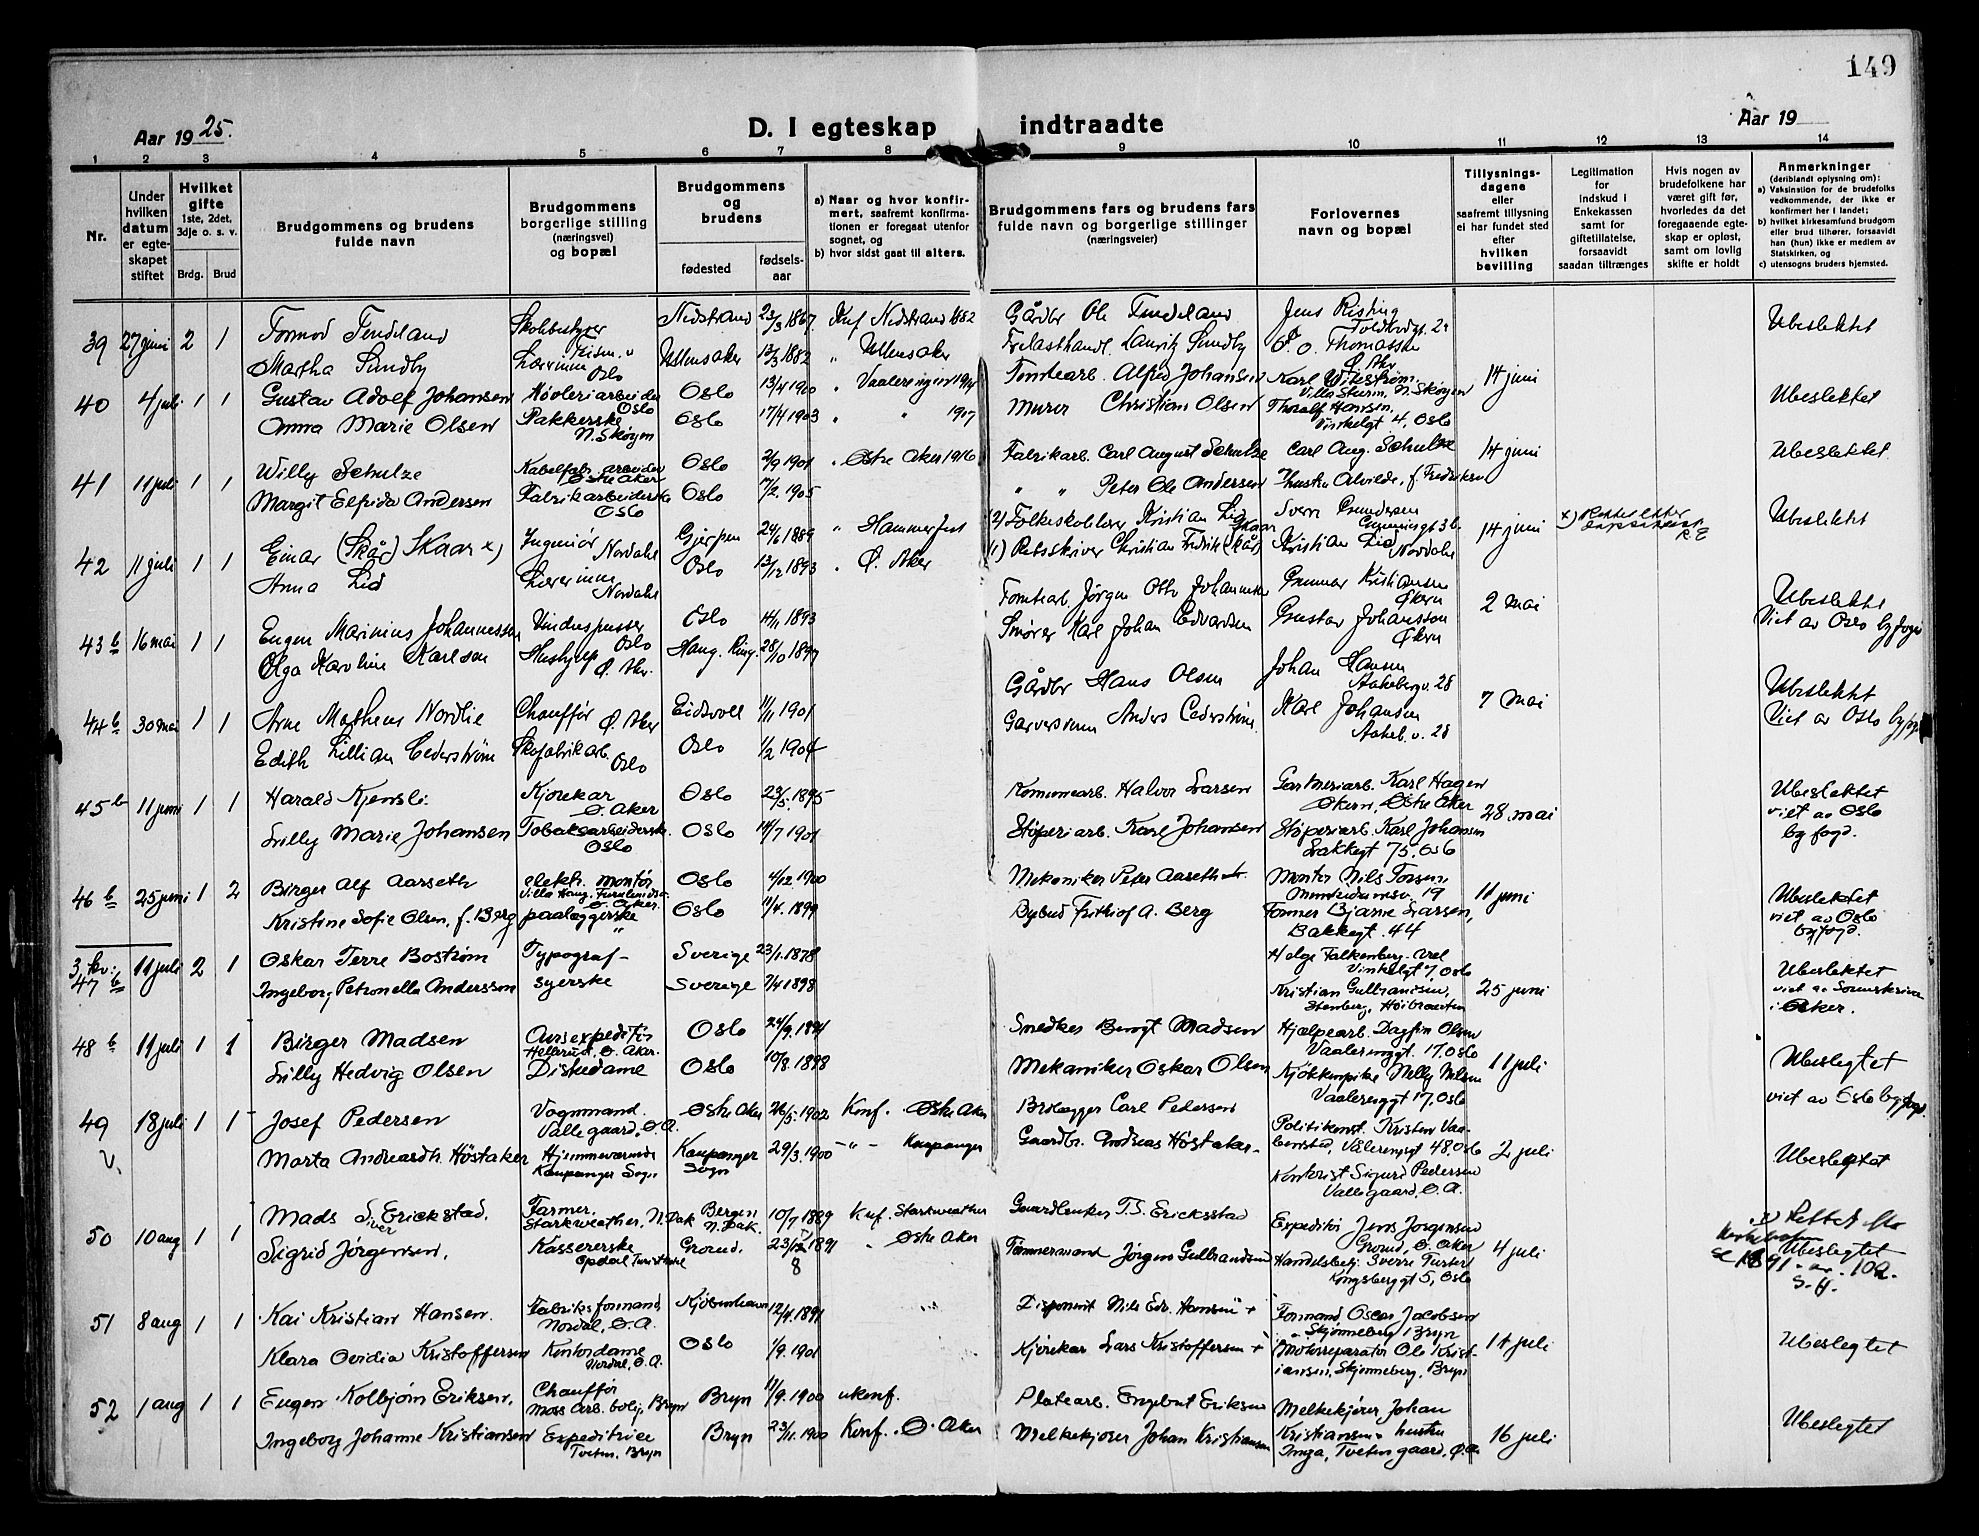 149
Aar 19 25.
D. I egteskap indtraadte
Aar 19
1 2 3 4 5 6 7 8 9 10 11 12 13 14
Nr.
Under hvilken datum er egte-skapet stiftet
Hvilket gifte 1ste, 2det, 3dje o. s. v.
Brdg. Brud
Brudgommens og brudens fulde navn
Brudgommens borgerlige stilling (næringsvei) og bopæl
Brudgommens og brudens
fødested
fødsels-aar
a) Naar og hvor konfir-mert, saafremt konfirma-tionen er foregaat utenfor sognet, og
b) hvor sidst gaat til alters.
Brudgommens fars og brudens fars fulde navn og borgerlige stillinger (næringsveier)
Forlovernes navn og bopæl
Tillysnings-dagene eller saafremt tillysning ei har fundet sted efter hvilken bevilling
Legitimation for indskud i Enkekassen samt for giftetillatelse, forsaavidt saadan tiltrænges
Hvis nogen av brudefolkene har været gift før, hvorledes da det foregaaende egte-skap er opløst, samt om lovlig skifte er holdt
Anmerkninger (deriblandt oplysning om):
a) Vaksinstion for de brudefolks vedkommende, der ikke er konfirmert her i landet;
b) hvilket kirkesamfund brudgom eller brud tilhører, forsaavidt han (hun) ikke er medlem av Statskirken, og
c) utensogns bruders hjemsted.
39 27 juni 2 1 Tormod Tendeland Nedstrand 23/3 1867 Knf Nedstrand 1882 Gårdbr Ole Tendeland Jens Risting Toldbodgt. 24 Ubeslektet
Martha Sundby Lærerinne Oslo Ullensaker 13/3 1882 " Ullensaker Trelasthandl. Lauritz Sundby O. Thomassen Ø. Aker
40 4 juli 1 1 Gustav Adolf Johansen Høvleriarbeider Oslo Oslo 13/4 1900 " Vaalerengen 1914 Tomtearb. Alfred Johansen Karl Wikstrøm, Villa Sturm, N. Skøyen 14 juni Ubeslektet
Anna Marie Olsen Pakkerske N. Skøyen Oslo 17/4 1903 " " 1917 Murer Christian Olsen Thoralf Hansen, Vinkelgt. 4, Oslo
41 11 juli 1 1 Willy Schulze Kabelfabr. arbeider Østre Aker Oslo 2/9 1901 " Østre Aker 1916 Fabrikarb. Carl August Schulze Carl Aug. Schulze 14 juni Ubeslektet.
Margit Elfrida Andersen Fabrikarbeiderske Oslo Oslo 17/2 1905 " " Peter Ole Andersen Hustru Alvilde, f. Fredriksen
42 11 juli 1 1 Einar (Skåø) Skaar x) Ingeniør Nordahl Gjerpen 24/6 1889 " Hammerfest (2) Folkeskolelærer Kristian Lid Sverre Gundersen 14 juni Ubeslektet
Anna Lid Lærerinne Nordahl Oslo 13/12 1893 " Ø. Aker (1) Retsskriver Christian Fredrik Skaar Kristian Lid Nordahl
43 b 16 mai 1 1 Eugen Marinius Johannessen Vinduspusser Oslo Oslo 14/1 1893 Tomtearb Jørgen Otto Johannessen Gunnar Kristiansen Økern 2 mai Ubeslektet Viet av Oslo byfogd
Olga Karoline Karlsen Hushjelp Ø. Akr. Haug. Ring. 28/10 1897 Smører Karl Johan Edvardsen Gustav Johansson Økern
44 b 30 mai 1 1 Arne Matheus Nordlie Chauffør Ø. Aker Eidsvoll 11/11 1901 Gårdbr Hans Olsen Johan Hansen Aakebergv. 28 7 mai Ubeslektet Viet av Oslo byfogd
Edith Lillian Cederstrøm Skofabrikarb. Oslo Oslo 1/2 1904 Garversvenn Anders Cederstrøm. Karl Johansen Aakeb.v. 28
45 b 11 juni 1 1 Harald Kjensli. Kjørekar Ø. Aker Oslo 23/5. 1895 Komunearb. Halvor Larsen Gartneriarb. Karl Hagen Økern, Østre Aker 28. mai Ubeslektet viet av Oslo byfogd.
Lilly Marie Johansen Tobaksarbeiderske. Oslo Oslo 14/7 1901 Støperiarb. Karl Johansen Støperiarb. Karl Johansen Lakkegt 75, Oslo
46 b 25 juni 1 2 Birger Alf Aarseth elektr. montør Villa Haug, Ø. Aker. Oslo 4/12. 1900 Mekaniker Peter Aarseth Montør Nils Torsen, Munkedamsv. 19 11 juni Ubeslektet viet av Oslo byfogd.
Kristine Sofie Olsen, f. Berg paalæggerske " Oslo 11/4. 1899 Bybud Frithiof A. Berg Former Bjarne Larsen, Bakkegt. 44
3. kv: 47 b 11 juli 2 1 Oskar Terre Bostrøm Typograf - Sverige 23/1. 1878 Helge Falkenberg Vinkelgt 7, Oslo 25 juni Ubeslektet viet av Sorenskriveren i Aker.
Ingeborg Petronella Andersson syerske Sverige 7/4 1898 Kristian Gulbrandsen, Stenberg, Høibraaten
48 b 11 juli 1 1 Birger Madsen Avisexpeditør Hellerud, Ø. Aker. Oslo 24/9. 1891 Snedker Bengt Madsen Hjælpearb. Dagfin Olsen Vaalerenggt. 17, Oslo 11 juli Ubeslegtet
Lilly Hedvig Olsen Diskedame Oslo 10/8. 1898 Mekaniker Oskar Olsen Kjøkkenpike Nelly Nilsen Vaalerenggt 17, Oslo viet av Oslo byfogd.
49 18 juli 1 1 Josef Pedersen Vognmand. Valle gaard, Ø. A. Østre Aker 26/5. 1902 Konf. Østre Aker Brolægger Carl Pedersen Politikonst. Kristen Vaa-bensted, Vålerenggt 48, Oslo 2 juli Ubeslegtet
V. Marta Andreasdh. Høstaker Hjemmeværende Kaupanger Sogn Kaupanger Sogn 29/3. 1900 - " - Kaupanger Gaardbr. Andreas Høstaker - Kontorist Sigurd Pedersen Valle gaard, Ø. A.
50 10 aug 1 1 Mads Siver Erickstad. Farmer, Starkweather, N. Dak Bergen N. Dak. 10/7 1889 Knf. Starkweather Gaardbruker T. S. Ericksstad Expeditør Jens Jørgensen Grorud, Ø. Aker 4 juli Ubeslegtet
Sigrid Jørgensen. Kassererske Opdal Turisthotel Grorud. 23/12 1891 8 " Østre Aker Tømmermand Jørgen Gulbrandsen Handelsbetj. Sverre Furseth Kongsberggt 5, Oslo
51 8 aug 1 1 Kai Kristian Hansen. Fabriksformand Nordal, Ø. A. Kjøbenhavn 12/4. 1891 Disponent Nils Edv. Hansen + Formand Oscar Jacobsen Skjønneberg, Bryn 14 juli Ubeslegtet
Klara Ovidia Kristoffersen Kontordame Nordal, Ø. A. Oslo 1/9. 1901 Kjørekar Lars Kristoffersen + Motorreparatør Ole Krist-iansen, Skjønneberg, Bryn
52 1 aug 1 1 Eugen Kolbjørn Eriksen. Chauffør Moss arb. bolig, Bryn Bryn 11/9. 1900 ukonf. Platearb. Engebret Eriksen Melkekjører Johan Kristiansen + hustru Inga, Tveten gaard, Ø. A. 16 juli Ubeslegtet
Ingeborg Johanne Kristiansen Expeditrice Tveten, Bryn Bryn 23/11. 1900 Konf. Ø. Aker Melkekjører Johan Kristiansen